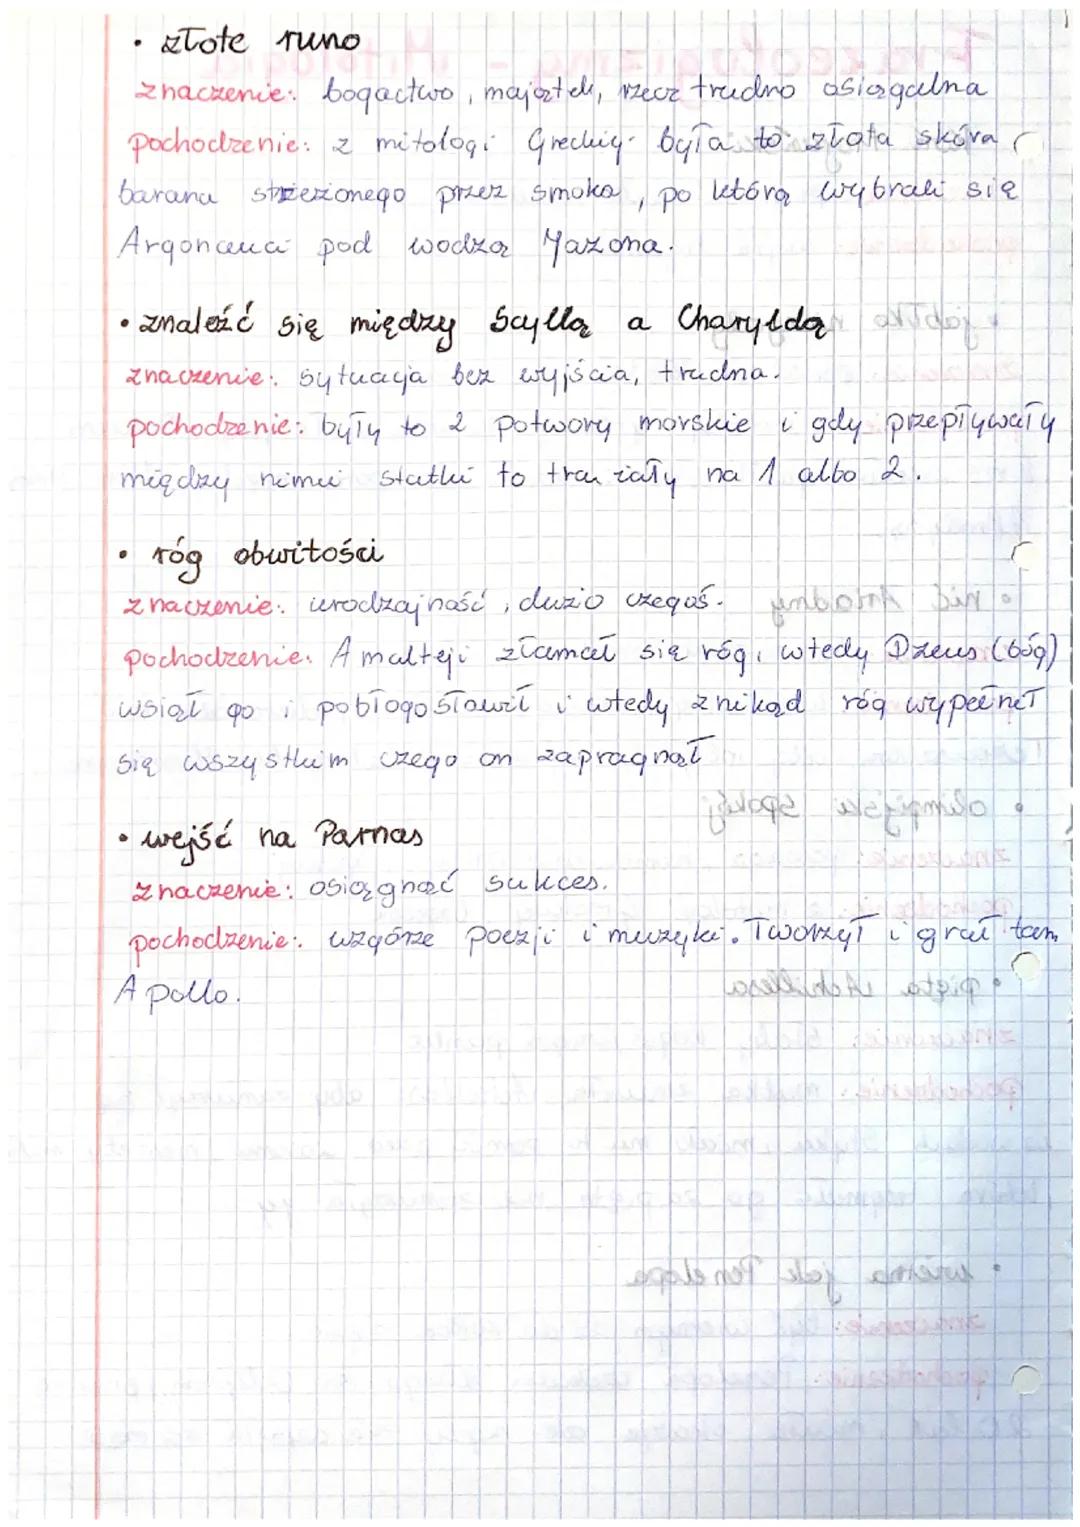 • złote runo
znaczenie: bogactwo, majątek, rzecz trudno osiągalna
pochodzenie: z mitologi Greckiej. była to złota skóra
barana strzeżonego przez smoka, po którą wybrali się
Argonauci pod wodzą Jazona.
• znaleźć się między Scyllą a Charybdą
znaczenie: sytuacja bez wyjścia, trudna.
pochodzenie: były to 2 potwory morskie i gdy przepływały
między nimi statki to trafiały na 1 albo 2.
• róg obwitości
znaczenie: urodzajność, dużo czegoś.
pochodzenie: Amalteji złamał się róg, wtedy Dzeus (bóg)
wsiął go i pobłogosławił i wtedy znikąd róg wypełnił
się wszystkim czego on zapragnął
• wejść na Parnas
znaczenie: osiągnąć sukces.
pochodzenie: wzgórze poezji i muzyki. Tworzył i grał tam
Apollo.